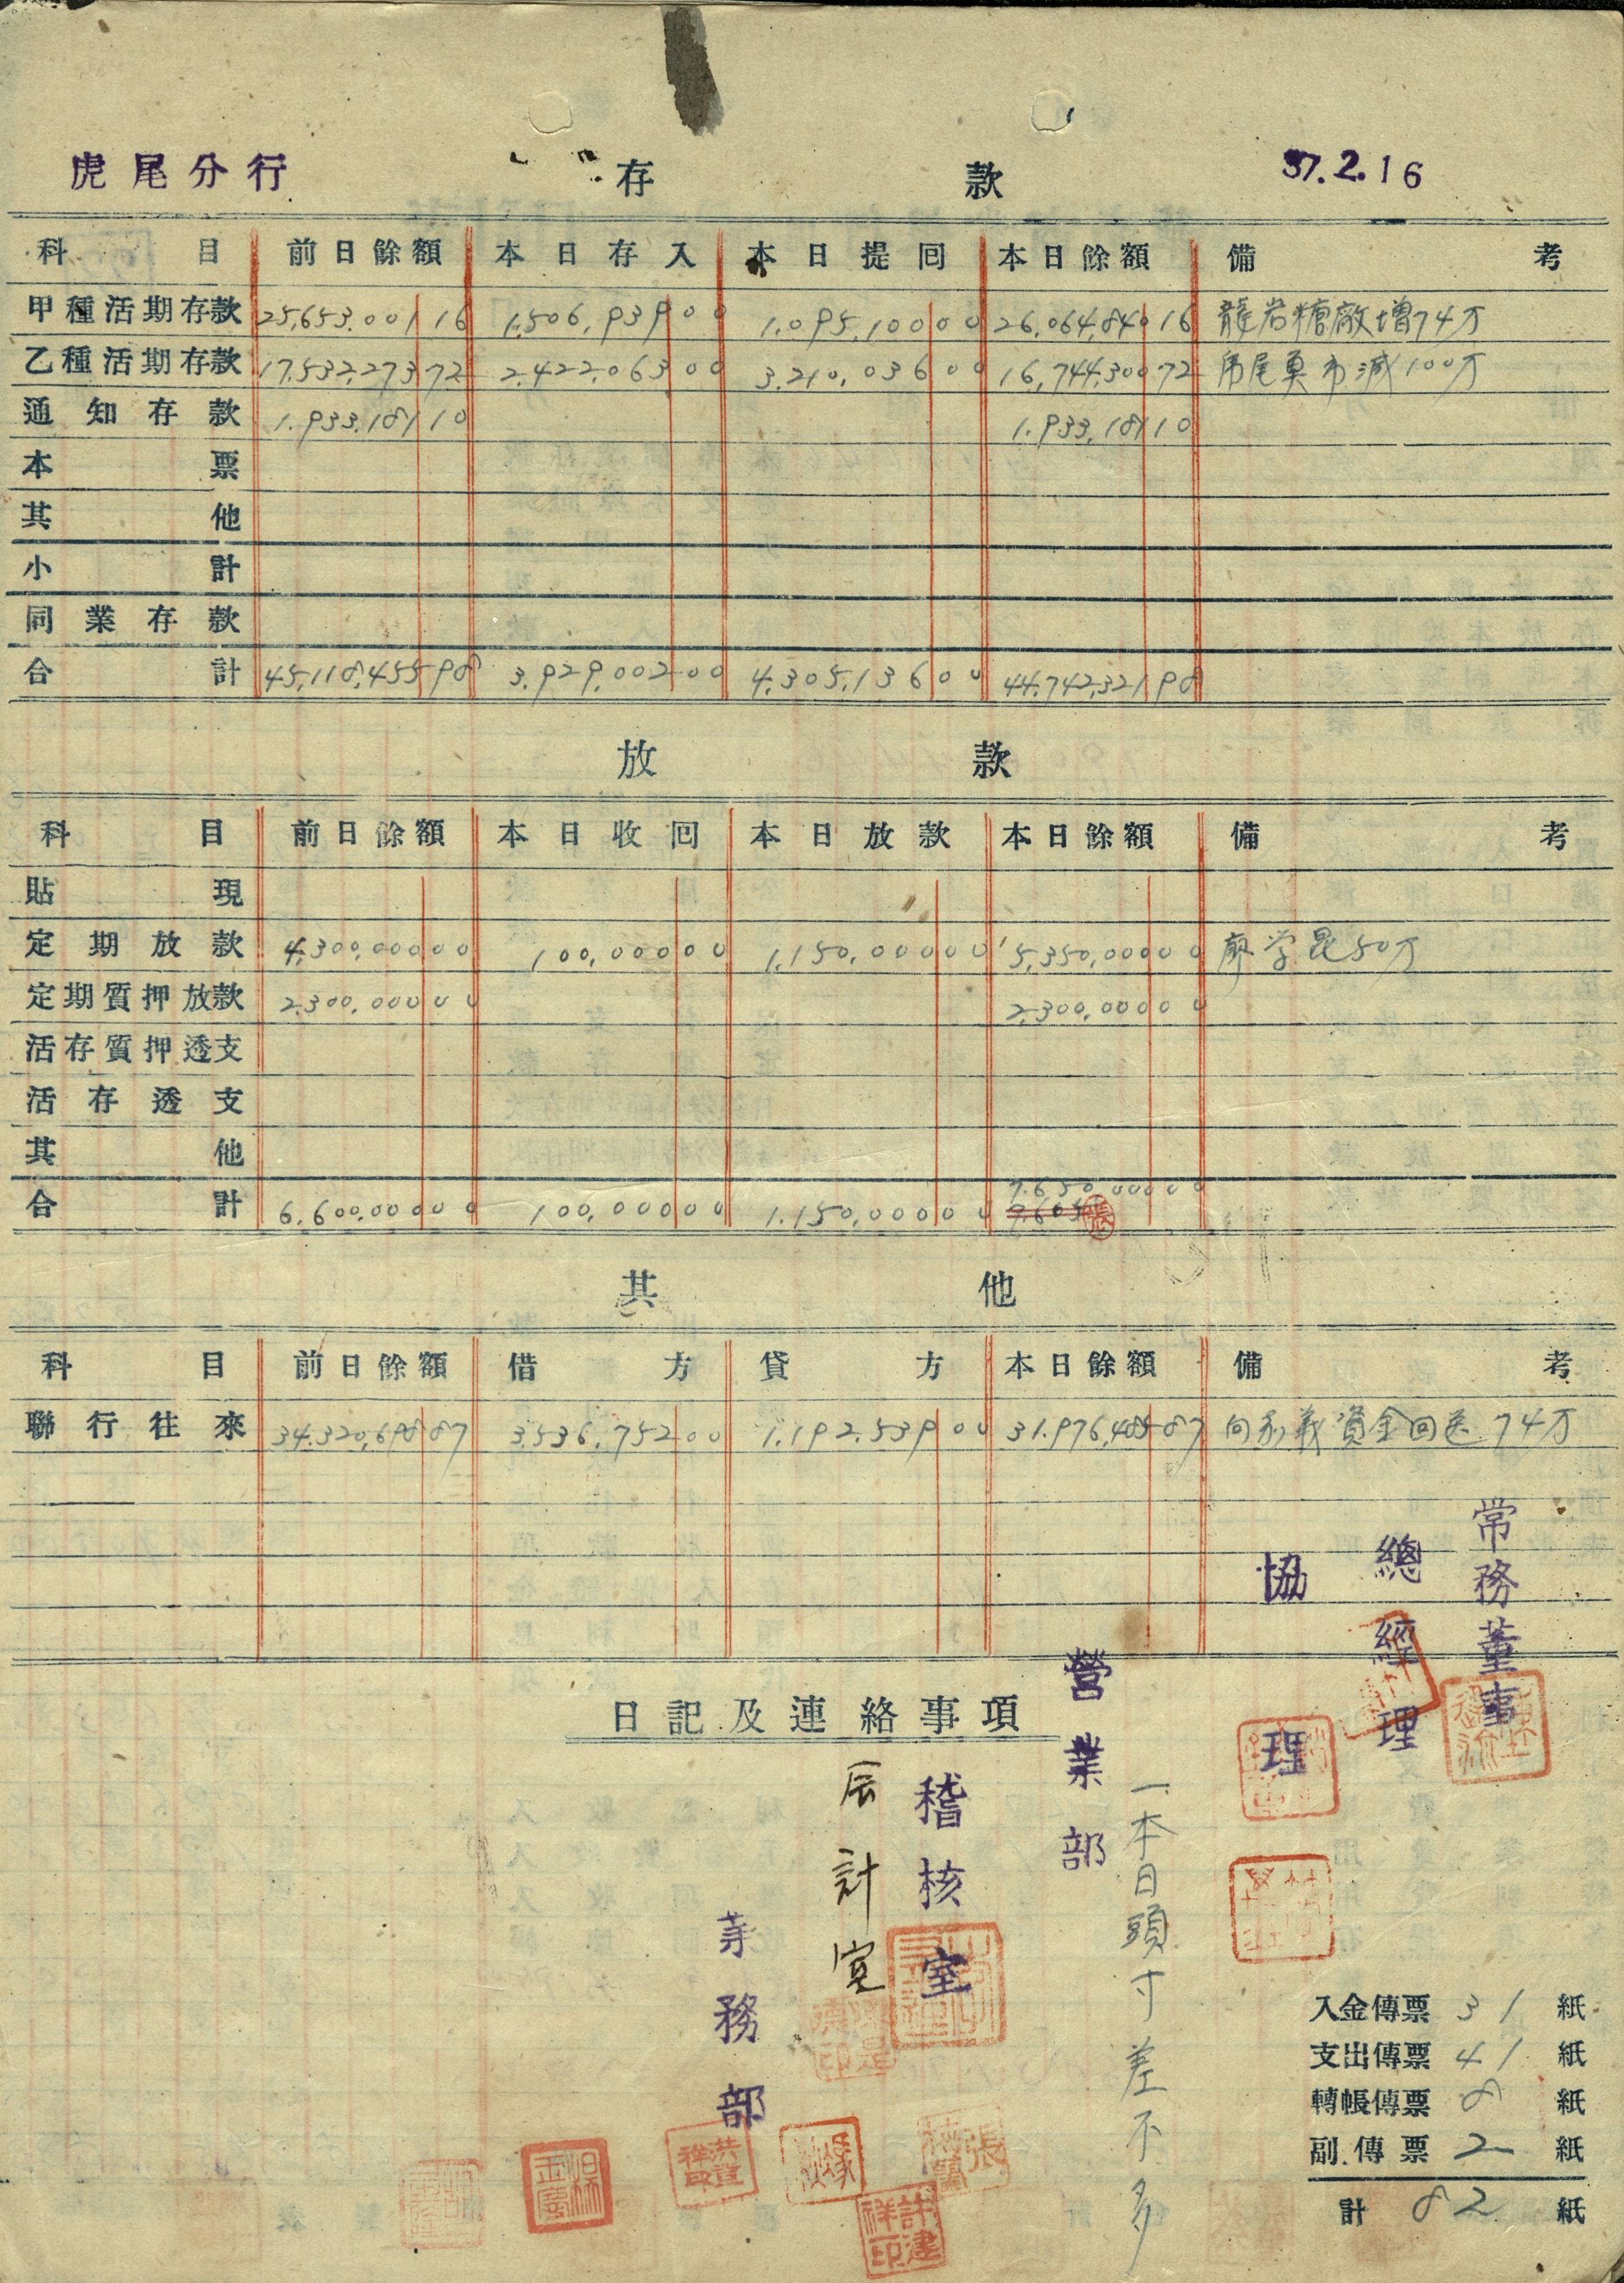 虎尾分行 存款 37.2.16
科目 前日餘額 本日存入 本日提囘 本日餘額 備考
甲種活期存款 25,653,001 16 1,506,939 00 1,095,100 00 26,064,840 16 龍岩糖廠增74万
乙種活期存款 17,532,273 72 2,422,063 00 3,210,036 00 16,744,300 72 100万
通知存款 1,933,181 10 1,933,181 10
本票
其他
小計
同業存款
合計 45,118,455 98 3,929,002 00 4,305,136 00 44,742,321 98
放款
科目 前日餘額 本日收囘 本日放款 本日餘額 備考
貼現
定期放款 4,300,000 00 100,000 00 1,150,000 00 5,350,000 00 廖学昆50万
定期質押放款 2,300,000 00 2,300,000 00
活存質押透支
活存透支
其他
合計 6,600,000 00 100,000 00 1,150,000 00 7,650,000 00
其他
科目 前日餘額 借方 貸方 本日餘額 備考
聯行往來 34,320,698 87 3,536,752 00 1,192,539 00 31,976,485 87 向嘉義資金回送74万
日記及連絡事項
常務董事
總經理
協理
營業部
一本日頭寸差不多
稽核室
計室
務部
入金傳票 31 紙
支出傳票 41 紙
轉帳傳票 8 紙
副傳票 2 紙
計 82 紙